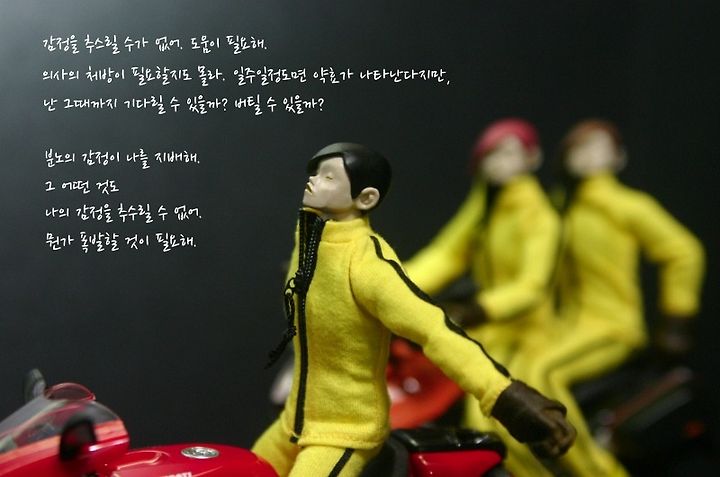 감정을 추스릴 수가 없어. 도움이 필요해.
의사의 처방이 필요할지도 몰라. 일주일정도면 약효가 나타난다지만,
난 그때까지 기다릴 수 있을까? 버틸 수 있을까?
분노의 감정이 나를 지배해.
그 어떤 것도
나의 감정을 추수릴 수 없어.
뭔가 폭발할 것이 필요해.